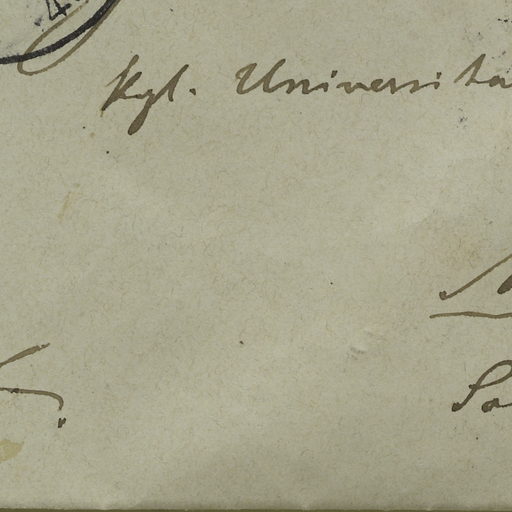 4.
Kgl. Universita
Sa